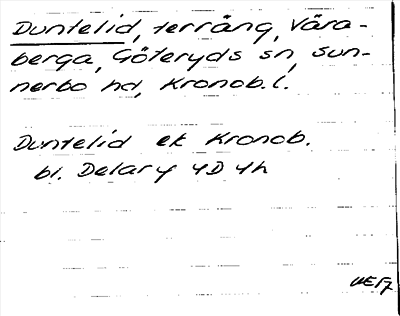 Duntelid, terräng, Våra-
berga, Göteryds sn, Sun-
nerbo hd, Kronob. l.
Duntelid ek Kronob.
bl. Delary 4D 4h